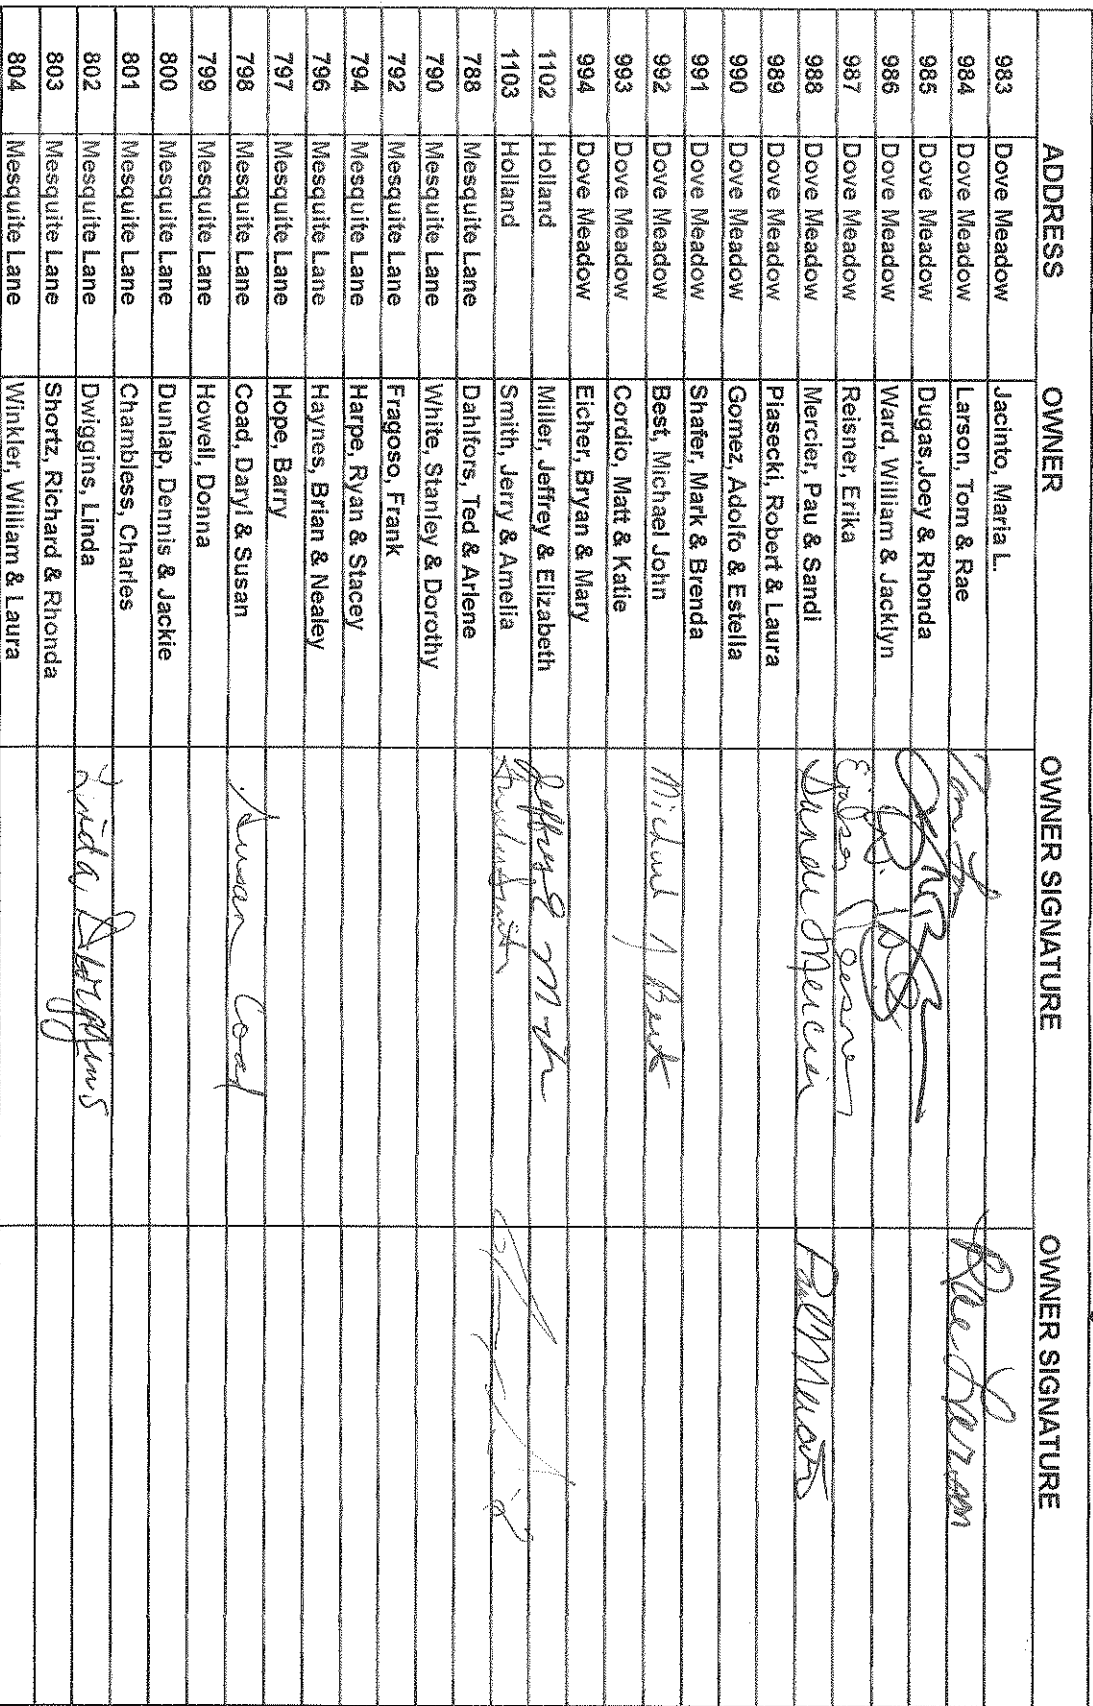 ADDRESS OWNER OWNER SIGNATURE OWNER SIGNATURE
983 Dove Meadow Jacinto, Maria L.
984 Dove Meadow Larson, Tom & Rae Tom Rae Larson
985 Dove Meadow Dugas,Joey & Rhonda
986 Dove Meadow Ward, William & Jacklyn
987 Dove Meadow Reisner, Erika
988 Dove Meadow Mercier, Pau & Sandi Sandi Mercier Paul Mercier
989 Dove Meadow Piasecki, Robert & Laura
990 Dove Meadow Gomez, Adolfo & Estella
991 Dove Meadow Shafer, Mark & Brenda
992 Dove Meadow Best, Michael John Michael J Best
993 Dove Meadow Cordio, Matt & Katie
994 Dove Meadow Eicher, Bryan & Mary
1102 Holland Miller, Jeffrey & Elizabeth Jeffrey E
1103 Holland Smith, Jerry & Amelia Amelia Smith
788 Mesquite Lane Dahlfors, Ted & Arlene
790 Mesquite Lane White, Stanley & Dorothy
792 Mesquite Lane Fragoso, Frank
794 Mesquite Lane Harpe, Ryan & Stacey
796 Mesquite Lane Haynes, Brian & Nealey
797 Mesquite Lane Hope, Barry
798 Mesquite Lane Coad, Daryl & Susan Susan Coad
799 Mesquite Lane Howell, Donna
800 Mesquite Lane Dunlap, Dennis & Jackie
801 Mesquite Lane Chambless, Charles
802 Mesquite Lane Dwiggins, Linda Linda Dwiggins
803 Mesquite Lane Shortz, Richard & Rhonda
804 Mesquite Lane Winkler, William & Laura